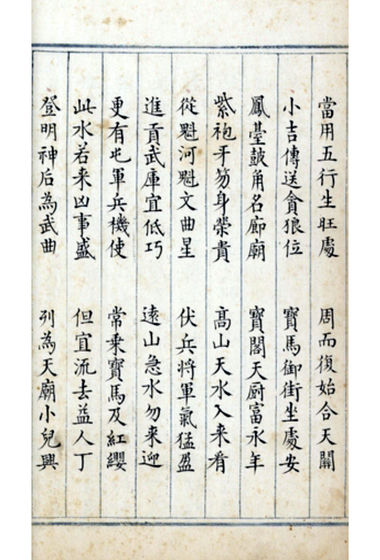 當用五行生旺處 周而復始合天關
小吉傳送貪狼位 寶馬御街坐處安
鳳臺鼓角名廊廟 寶閣天厨富永年
紫袍牙笏身榮貴 高山天水入來看
從魁河魁文曲星 伏兵將軍氣猛盈
進貢武庫宜低巧 遠山急水勿來迎
更有屯軍兵機使 常乘寶馬及紅纓
此水若来凶事盛 但宜流去益人丁
登明神后為武曲 列為天廟小兒興